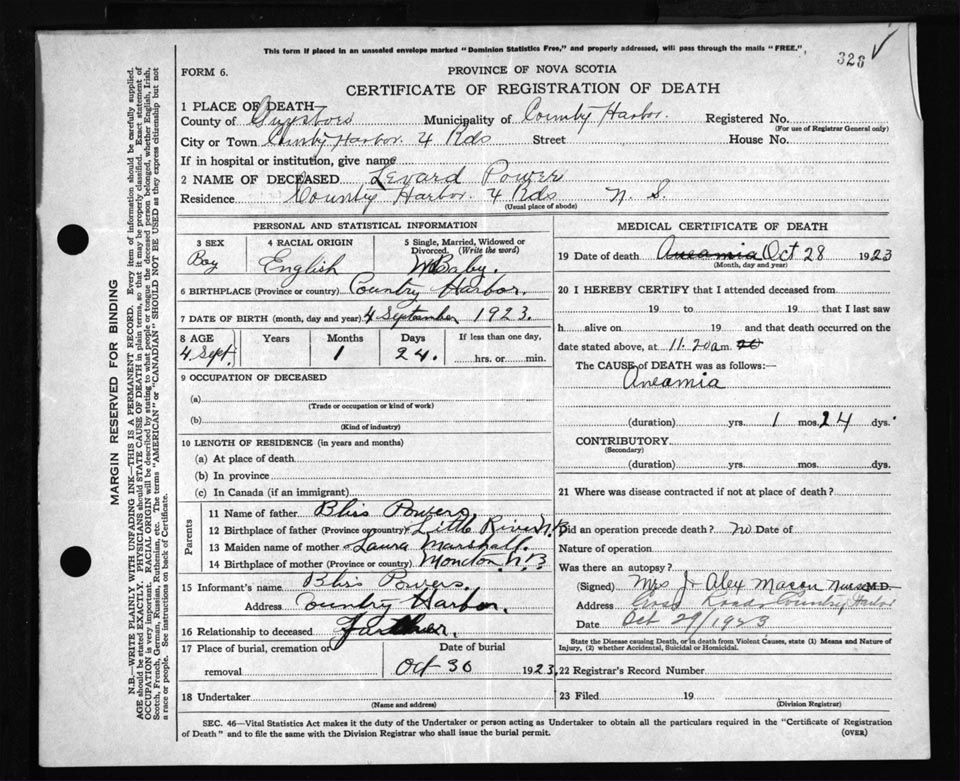 This form if placed in an unsealed envelope marked "Dominion Statistics Free," and properly addressed, will pass through the mails "FREE."
328 ✓
FORM 6.
PROVINCE OF NOVA SCOTIA
CERTIFICATE OF REGISTRATION OF DEATH
1 PLACE OF DEATH—
County of Guysboro Municipality of Country Harbor. Registered No.
(For use of Registrar General only)
City or Town Country Harbor 4 Rds Street House No.
If in hospital or institution, give name
2 NAME OF DECEASED Levard Power
Residence Country Harbor 4 Rds N. S.
(Usual place of abode)
PERSONAL AND STATISTICAL INFORMATION
3 SEX Boy
4 RACIAL ORIGIN English
5 Single, Married, Widowed or Divorced. (Write the word) Baby.
6 BIRTHPLACE (Province or country) Country Harbor.
7 DATE OF BIRTH (month, day and year) 4 September 1923.
8 AGE Years Months Days If less than one day,
4 Sept. 1 24. hrs. or min.
9 OCCUPATION OF DECEASED
(a)
(Trade or occupation or kind of work)
(b)
(Kind of industry)
10 LENGTH OF RESIDENCE (in years and months)
(a) At place of death
(b) In province
(c) In Canada (if an immigrant)
Parents
11 Name of father Bliss Powers
12 Birthplace of father (Province or country) Little River N.B
13 Maiden name of mother Laura Marshall.
14 Birthplace of mother (Province or country) Moncton N.B
15 Informant's name Bliss Powers.
Address Country Harbor.
16 Relationship to deceased Farther.
17 Place of burial, cremation or removal Date of burial
Oct 30 1923.
18 Undertaker
(Name and address)
MEDICAL CERTIFICATE OF DEATH
19 Date of death Aneamia Oct 28 1923
(Month, day and year)
20 I HEREBY CERTIFY that I attended deceased from
19 to 19 that I last saw
h alive on 19 and that death occurred on
date stated above, at 11.20 a.m. 20
The CAUSE of DEATH was as follows:—
Aneamia
(duration) yrs. 1 mos. 24 dys.
CONTRIBUTORY
(Secondary)
(duration) yrs. mos. dys.
21 Where was disease contracted if not at place of death?
Did an operation precede death? no Date of
Nature of operation
Was there an autopsy?
(Signed) Mrs J Alex Mason Nurse M.D.
Address Cross Roads Country Harbor
Date Oct 29/1923
State the Disease causing Death, or in death from Violent Causes, state (1) Means and Nature of
Injury, (2) whether Accidental, Suicidal or Homicidal.
22 Registrar's Record Number
23 Filed 19
(Division Registrar)
SEC. 46—Vital Statistics Act makes it the duty of the Undertaker or person acting as Undertaker to obtain all the particulars required in the "Certificate of Registration
of Death" and to file the same with the Division Registrar who shall issue the burial permit.
(OVER)
MARGIN RESERVED FOR BINDING
N.B.—WRITE PLAINLY WITH UNFADING INK—THIS IS A PERMANENT RECORD. Every item of information should be carefully supplied.
AGE should be stated EXACTLY. PHYSICIANS should STATE CAUSE OF DEATH in plain terms, so that it may be properly classified. Exact statement of
OCCUPATION is very important. RACIAL ORIGIN will be described by stating to what people or tongue the deceased person belonged, whether English, Irish,
Scotch, French, German, Russian, Ruthenian, etc. The terms "AMERICAN" or "CANADIAN" SHOULD NOT BE USED as they express citizenship but not
a race or people. See instructions on back of Certificate.